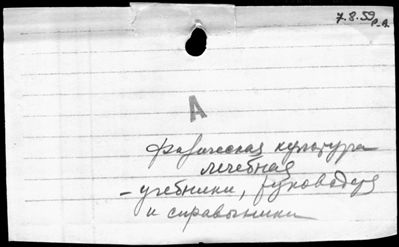 7.8.59
А
физическая культура
лечебная
- учебники, руковод
и справочники